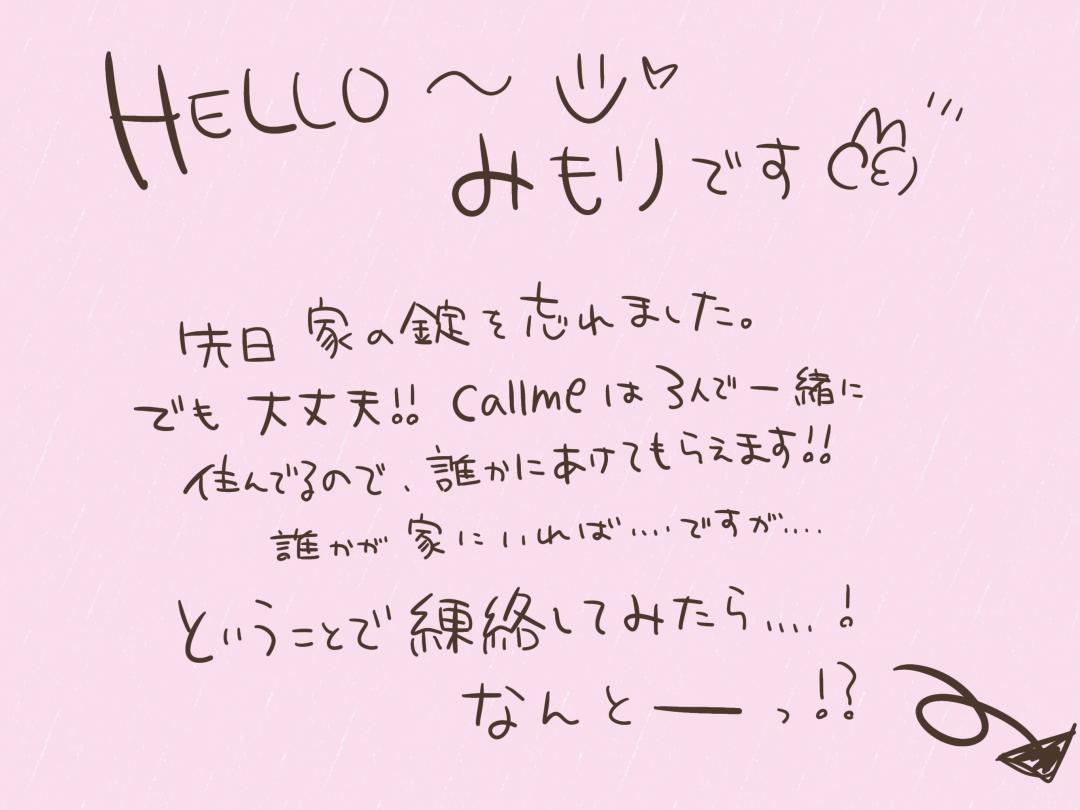 HELLO〜
みもりです
先日 家の錠を忘れました。
でも 大丈夫!! Callmeは 3人で一緒に
住んでるので、誰かにあけてもらえます!!
誰かが 家にいれば....ですが....
ということで 練絡してみたら....!
なんとーっ!?